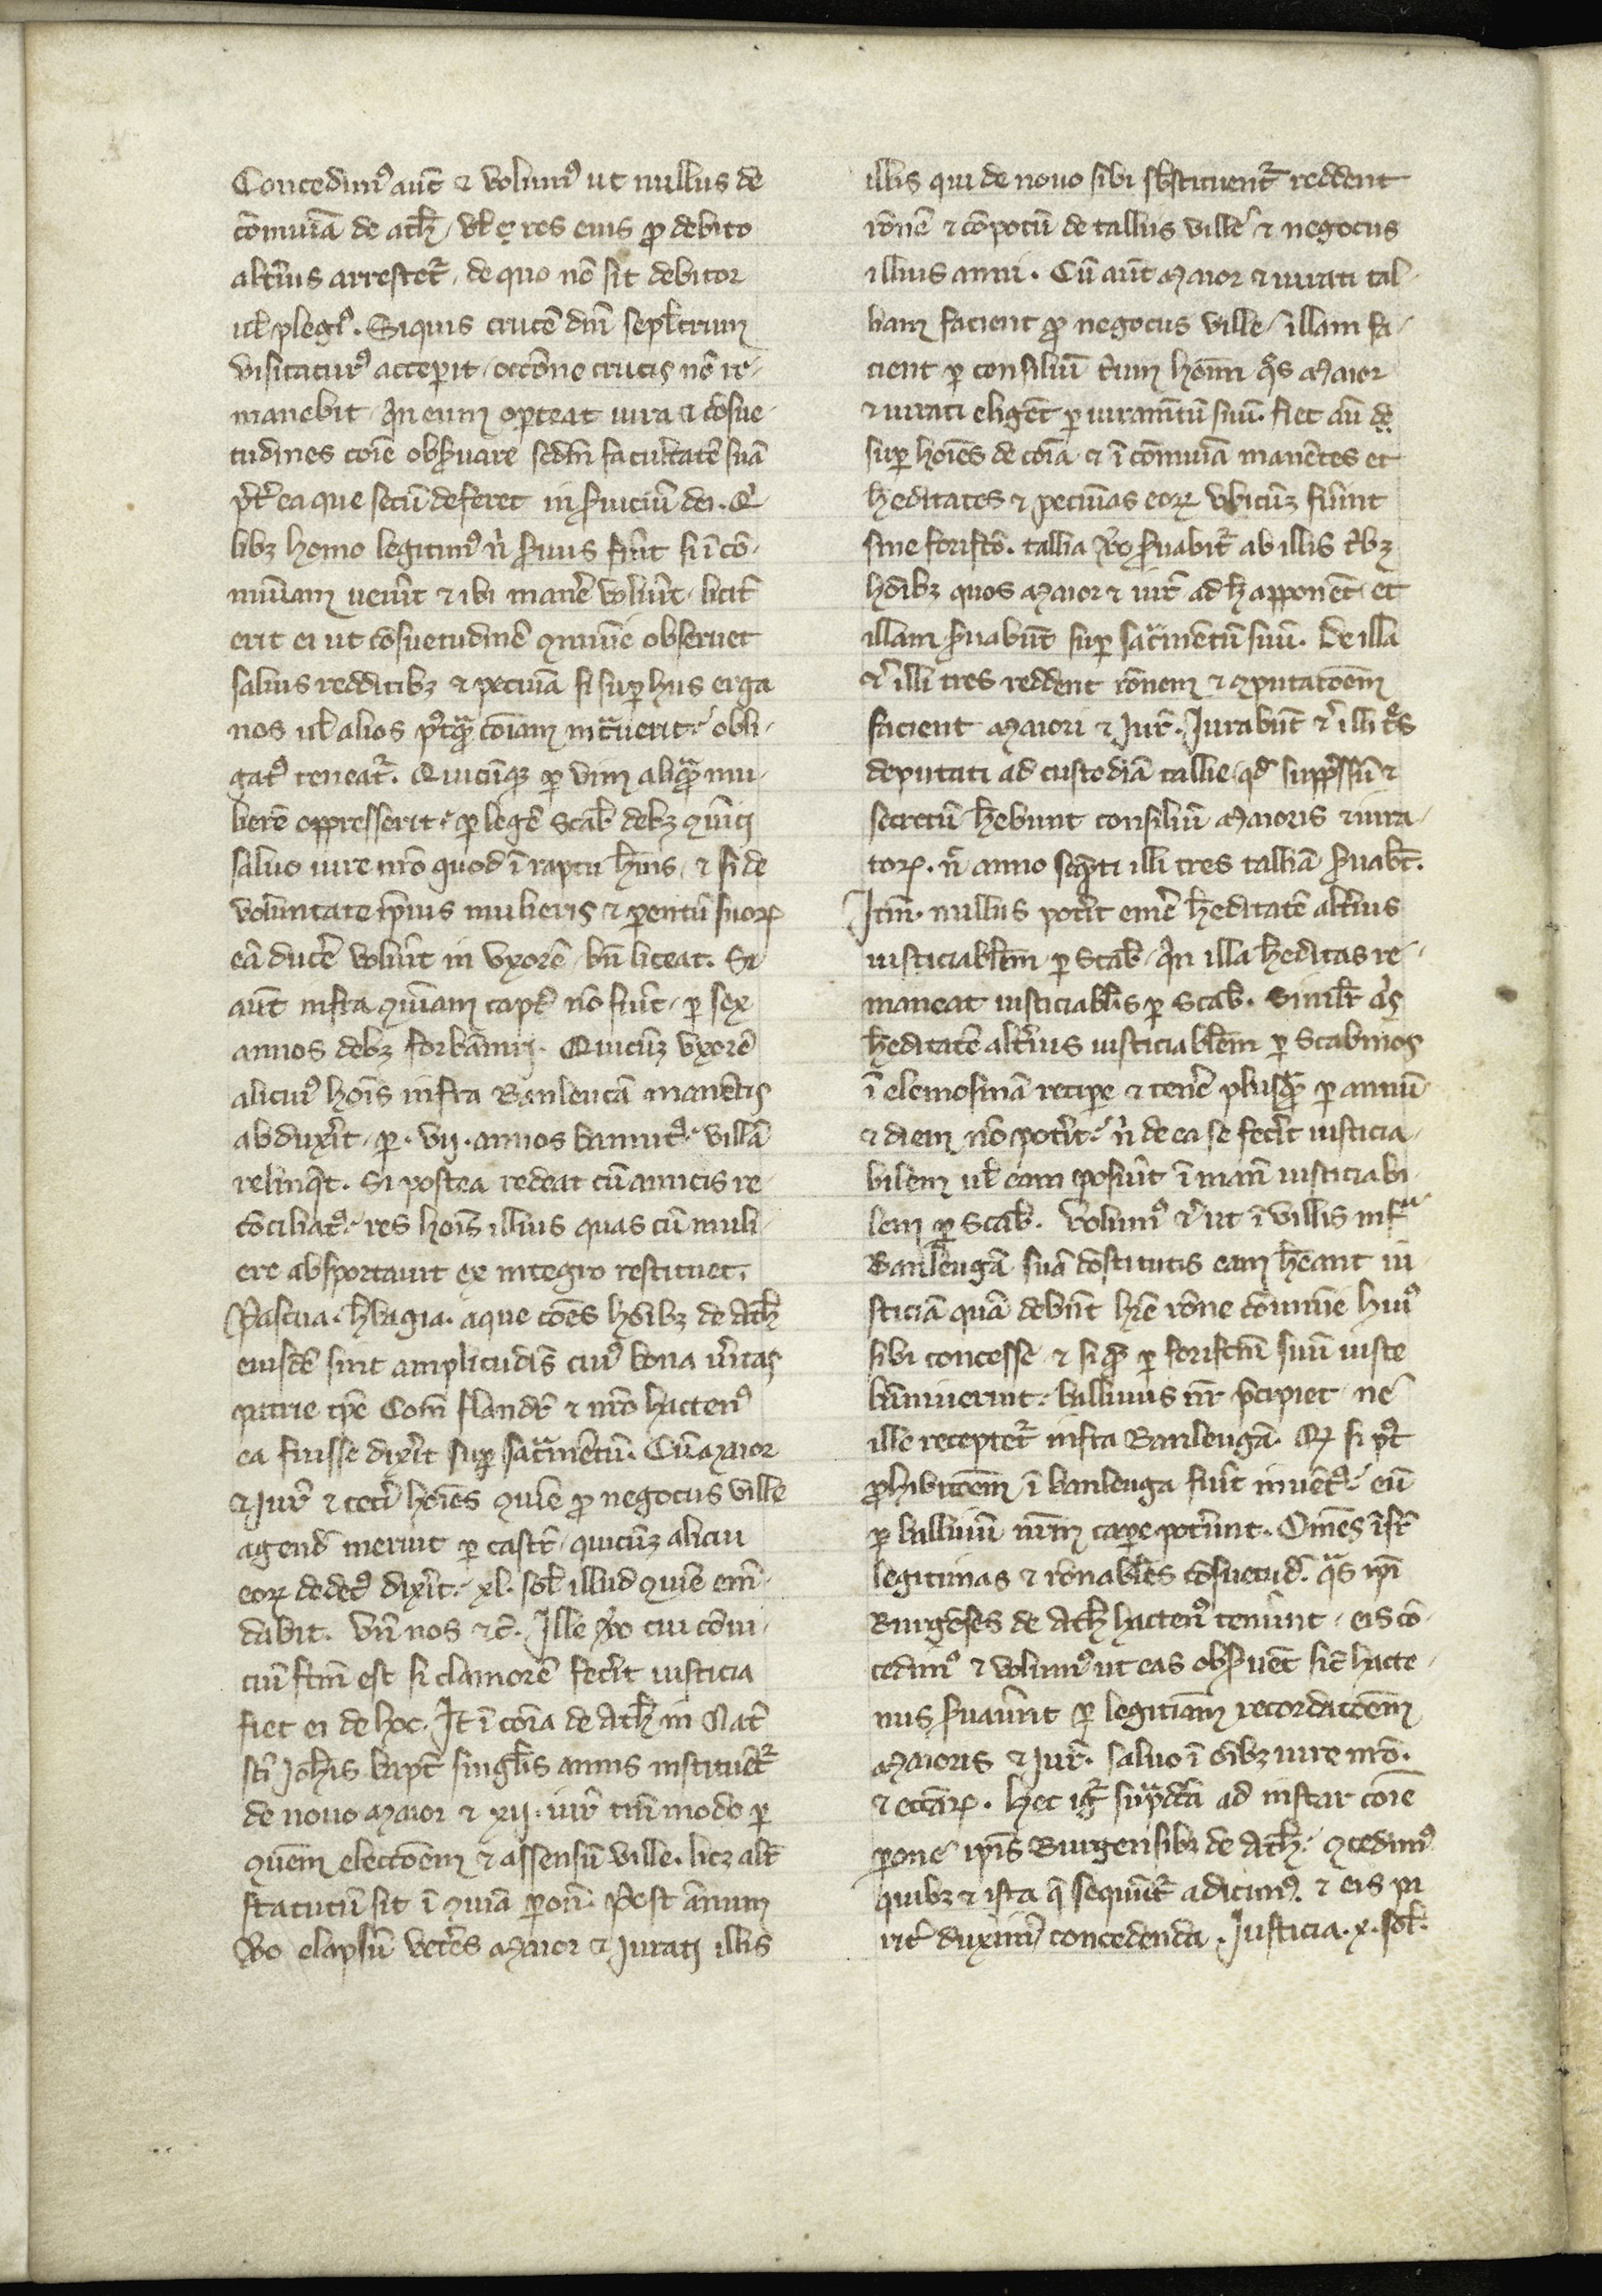 Concedimꝰ aut̄ ⁊ volumꝰ ut nullus de
cōmuīa de atħ. vl̄ res eius ꝓ debito
alt̓ius arrestet̉. de quo nō sit debitor
ul̄ plegiꝰ. Siquis crucē dnī sepl̄crum
visitaturꝰ acceꝑit. occōne crucis nō re-
manebit. qn eum oporteat iura ⁊ cōsue-
tudines coīe obẜuare scdm̄ facultatē suā
p̄t̓ ea que secū deferet in ẜuiciū dei. Qͥ
libꝫ homo legitimꝰ nͥ ẜuus fūit si ī cō-
muīam uenīt ⁊ ibi manē volūit. licit̄
erit ei ut cōsuetudinē ꝯmuīe obseruet
saluis redditibꝫ ⁊ pecuīa si suꝑ hiis erga
nos ul̄ alios pꝰtqͣ coīam intͣuerit. obli-
gatꝰ teneat̉. Quicūqꝫ ꝑ vim aliqͣ mu-
lierē oppresserit. ꝑ legē Scab̄ debꝫ ꝯuīci
saluo iure nr̄o quod ī raptu hēmꝰ. ⁊ si de
voluntate ip̄ius mulieris ⁊ ꝑentū suoꝝ
eā ducē volūit in vxorē. bn̄ liceat. Si
aut̄ infra ꝯuīam captꝰ nō fūit. ꝑ sex
annos debꝫ forbāniri. Quicūqꝫ vxorē
alicuiꝰ hoīs infra Banleucā manētis
abduxīt. ꝑ. vij. annos bannitꝰ. villā
relinq̄t. Si postea redeat cū amicis re-
cōciliatꝰ. res hoīs illius quas cū muli-
ere absportauit ex integro restituet.
Pascua. hͬbagia. aque coēs hōibꝫ de Atħ
eiusdē sint amplitudīs cuiꝰ bona ūitas
patrie tꝑe Com̄ flandr̄ ⁊ nr̄o hactenꝰ
ea fuisse dix̓it suꝑ sacͣmentū. Cū maior
⁊ Jur̄ ⁊ cet̓i hoīes ꝯuīe ꝓ negociis ville
agend̄ inerint ꝑ castr̄. quicūqꝫ alicui
eoꝝ dedecꝰ dix̓it. xl. sol̄ illud ꝯuīe em̄-
dabit. Vn̄ nos ⁊c̄. Ille v̓o cui cōui-
ciū fc̄m est si clamorē fec̓it iusticia
fiet ei de hoc. Jt̄ ī coīa de Atħ in Nat̄
sc̄i Joħis bapt̄ singl̄is annis instituēt̉
de nouo maior ⁊ xij. iur̄ tn̄ modo ꝑ
ꝯuēm electōem ⁊ assensū ville. licꝫ alit̄
statutū sit ī ꝯuīa ꝑon̄. Post annum
v̓o elapsū vet̓es maior ⁊ Jurati illis
illis qui de nouo sibi sb̄stituent̉ reddent
rōnē ⁊ cōpotū de talliis ville ⁊ negociis
illius anni. Cū aut̄ maior ⁊ iurati tal-
liam facient ꝓ negociis ville. illam fa-
cient ꝑ consiliū t̓um hoīm qͦs maior
⁊ iurati eligēt ꝑ iuramtū suū. fiet aū de
suꝑ hoīes de coīa ⁊ ī cōmuīa manētes et
hͬeditates ⁊ pecuīas eoꝝ vbicūqꝫ fūint
sine forifcō. tallia v̓o ẜuabit̉ ab illis t̓bꝫ
hōibꝫ quos maior ⁊ iur̄ ad ħ apponēt. et
illam ẜuabūt suꝑ sacͣmentū suū. De illa
⁊̄ illi tres reddent rōnem ⁊ ꝯputatōem
facient maiori ⁊ Jur̄. Jurabūt ⁊̄ illi t̓s
deputati ad custodiā tallie. qd̄ supp̄ssū ⁊
secretū hēbunt consiliū maioris ⁊ iura-
toꝝ. nͥ anno seq̄nti illi tres talliā ẜuabt̄.
Jtm̄. nullus pot̓it emē hͬeditatē alt̓ius
iusticiabl̄em ꝑ Scab̄. qn illa hͬeditas re-
maneat iusticiabl̄is ꝑ Scab̄. Similit̄
hͬeditatē alt̓ius iusticiabl̄em ꝑ Scabinos
ī elemosinā reciꝑe ⁊ tenē plusqͣ ꝑ annū
⁊ diem nō pot̓it. nͥ de ea se fec̓it iusticia-
bilem ul̄ eam posūit ī manū iusticiabi-
lem ꝑ Scab̄. volumꝰ ⁊̄ ut ī villis infͣ
Banleugā suā cōstitutis eam hēant iu-
sticiā quā debūt hr̄e rōne cōmuīe huiꝰ
sibi concesse. ⁊ si qͤ ꝑ forifcm̄ suū iuste
bānnierint. balliuus nr̄ p̄cipiet ne
ille receptet̉ infra Banleugā. Qͩ si pꝰt
ꝓhibitōem ī banleuga fūit inuētꝰ. eū
ꝑ balliuū nr̄m caꝑe pot̓unt. Om̄es īsr̄
legitimas ⁊ rōnabl̄es cōsuetud̄. qͣs ip̄i
Burgēses de Atħ hactenꝰ tenūnt. eis cō-
cedimꝰ ⁊ volumꝰ ut eas obẜuēt sic̄ hacte-
nus ẜuaūnt ꝑ legitimā recordatōem
maioris ⁊ Jur̄. saluo ī oībꝫ iure nr̄o.
⁊ ecc̄aꝝ. Hec igͬ sup̄dcā ad instar coīe
ꝑone ip̄is Burgensibꝫ de Atħ. ꝯcedimꝰ
quibꝫ ⁊ ista q̄ sequūt̉ adicimꝰ. ⁊ eis pi
rit̄ duximꝰ concedenda. Justicia. x. sol̄.